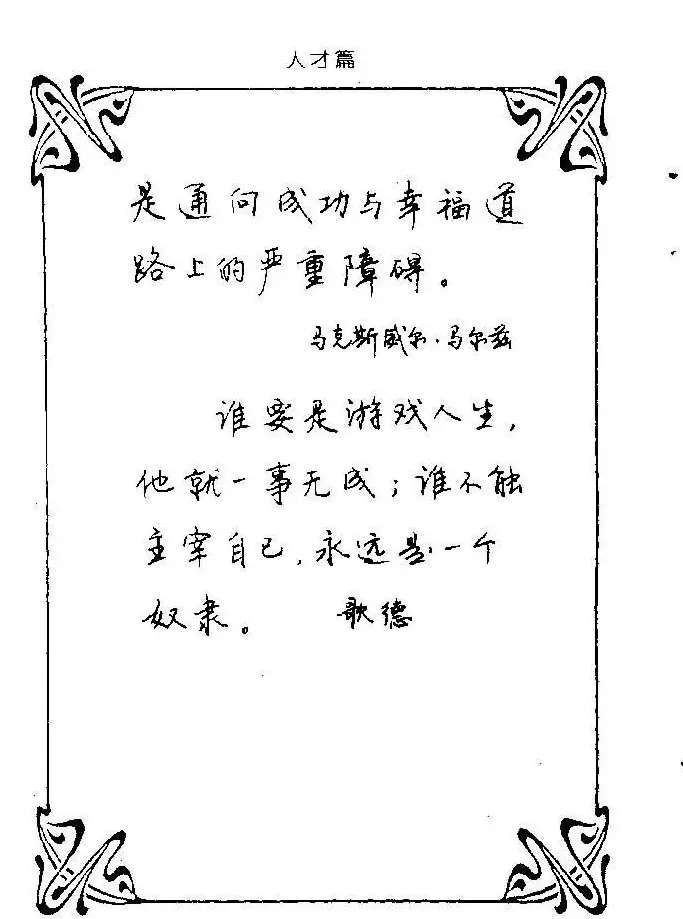 人才篇
是通向成功与幸福道
路上的严重障碍。
马克斯威尔·马尔兹
谁要是游戏人生，
他就一事无成；谁不能
主宰自己，永远是一个
奴隶。 歌德